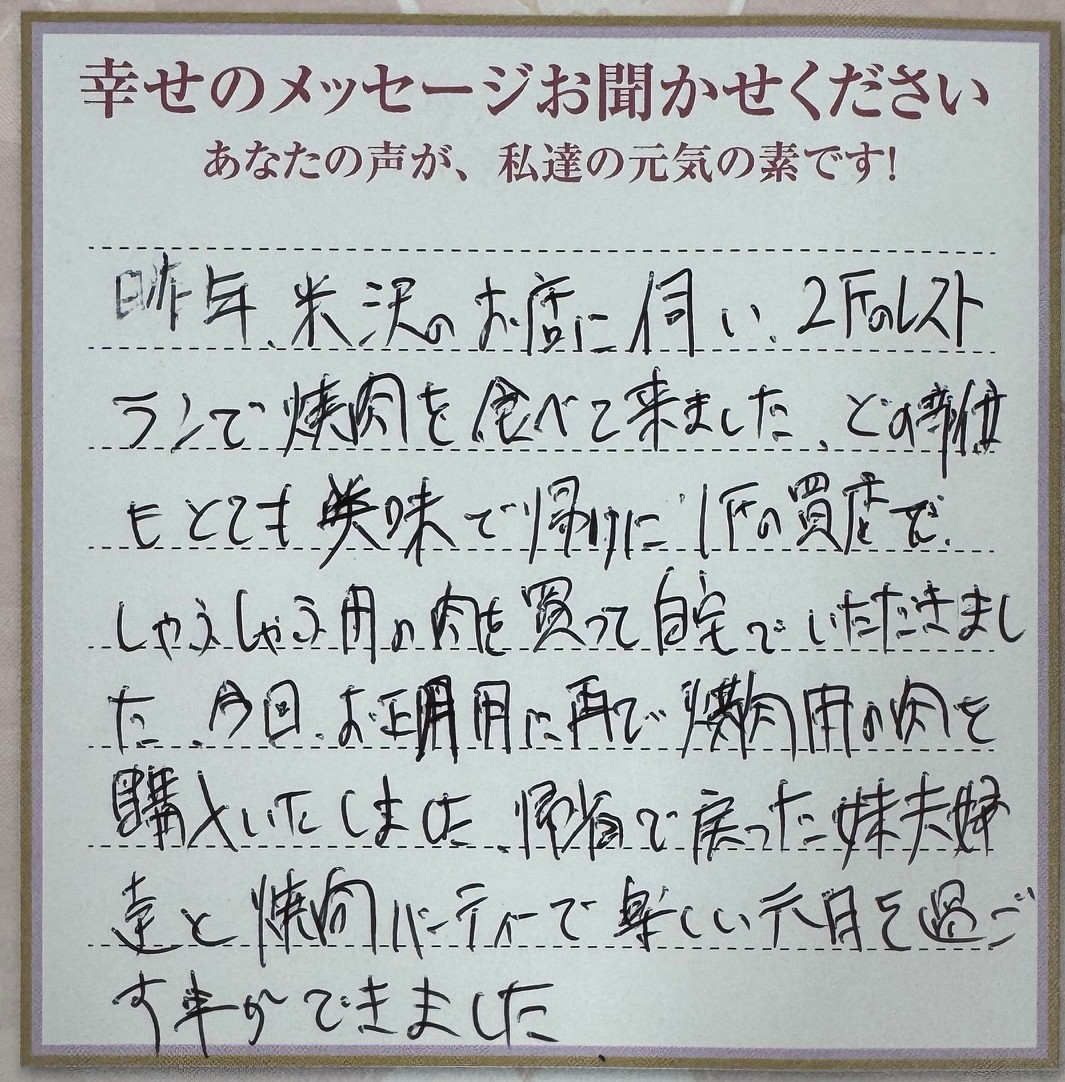 幸せのメッセージお聞かせください
あなたの声が、私達の元気の素です!
昨年、米沢のお店に伺い、2Fのレスト
ランで焼肉を食べて来ました、どの部位
もとても美味で帰りに1Fの買店で、
しゃぶしゃぶ用の肉を買って自宅でいただきまし
た、今回、お正月用に再び焼肉用の肉を
購入いたしました、帰省で戻った妹夫婦
達と焼肉パーティーで楽しい元日を過ご
す事ができました